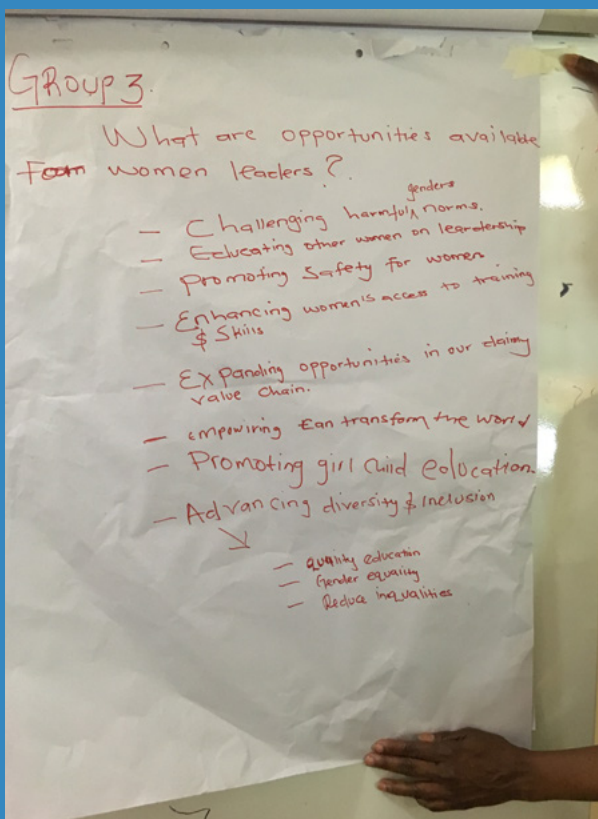 GROUP 3.
What are opportunities available
For women leaders?
genders
- Challenging harmful norms.
- Educating other women on leardership
- Promoting Safety for women
- Enhancing women's access to training
& Skills
- Expanding opportunities in our dairy
value chain.
- empowiring can transform the world
- Promoting girl child education.
- Advancing diversity & Inclusion
- quality education
- Gender equality
- Reduce inqualities